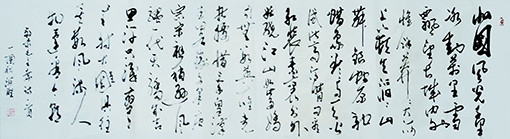 北国风光千里
冰封万里雪
飘望长城内外
惟余莽莽大河
上下顿失滔滔山
舞银蛇原驰
蜡象欲与天公
试比高须晴日看
红装素裹分外
妖娆江山如此多娇
引无数英雄竞
折腰惜秦皇汉武
略输文采唐
宗宋祖稍逊风
骚一代天骄成吉
思汗只识弯弓
射大雕俱往
矣数风流人
物还看今朝